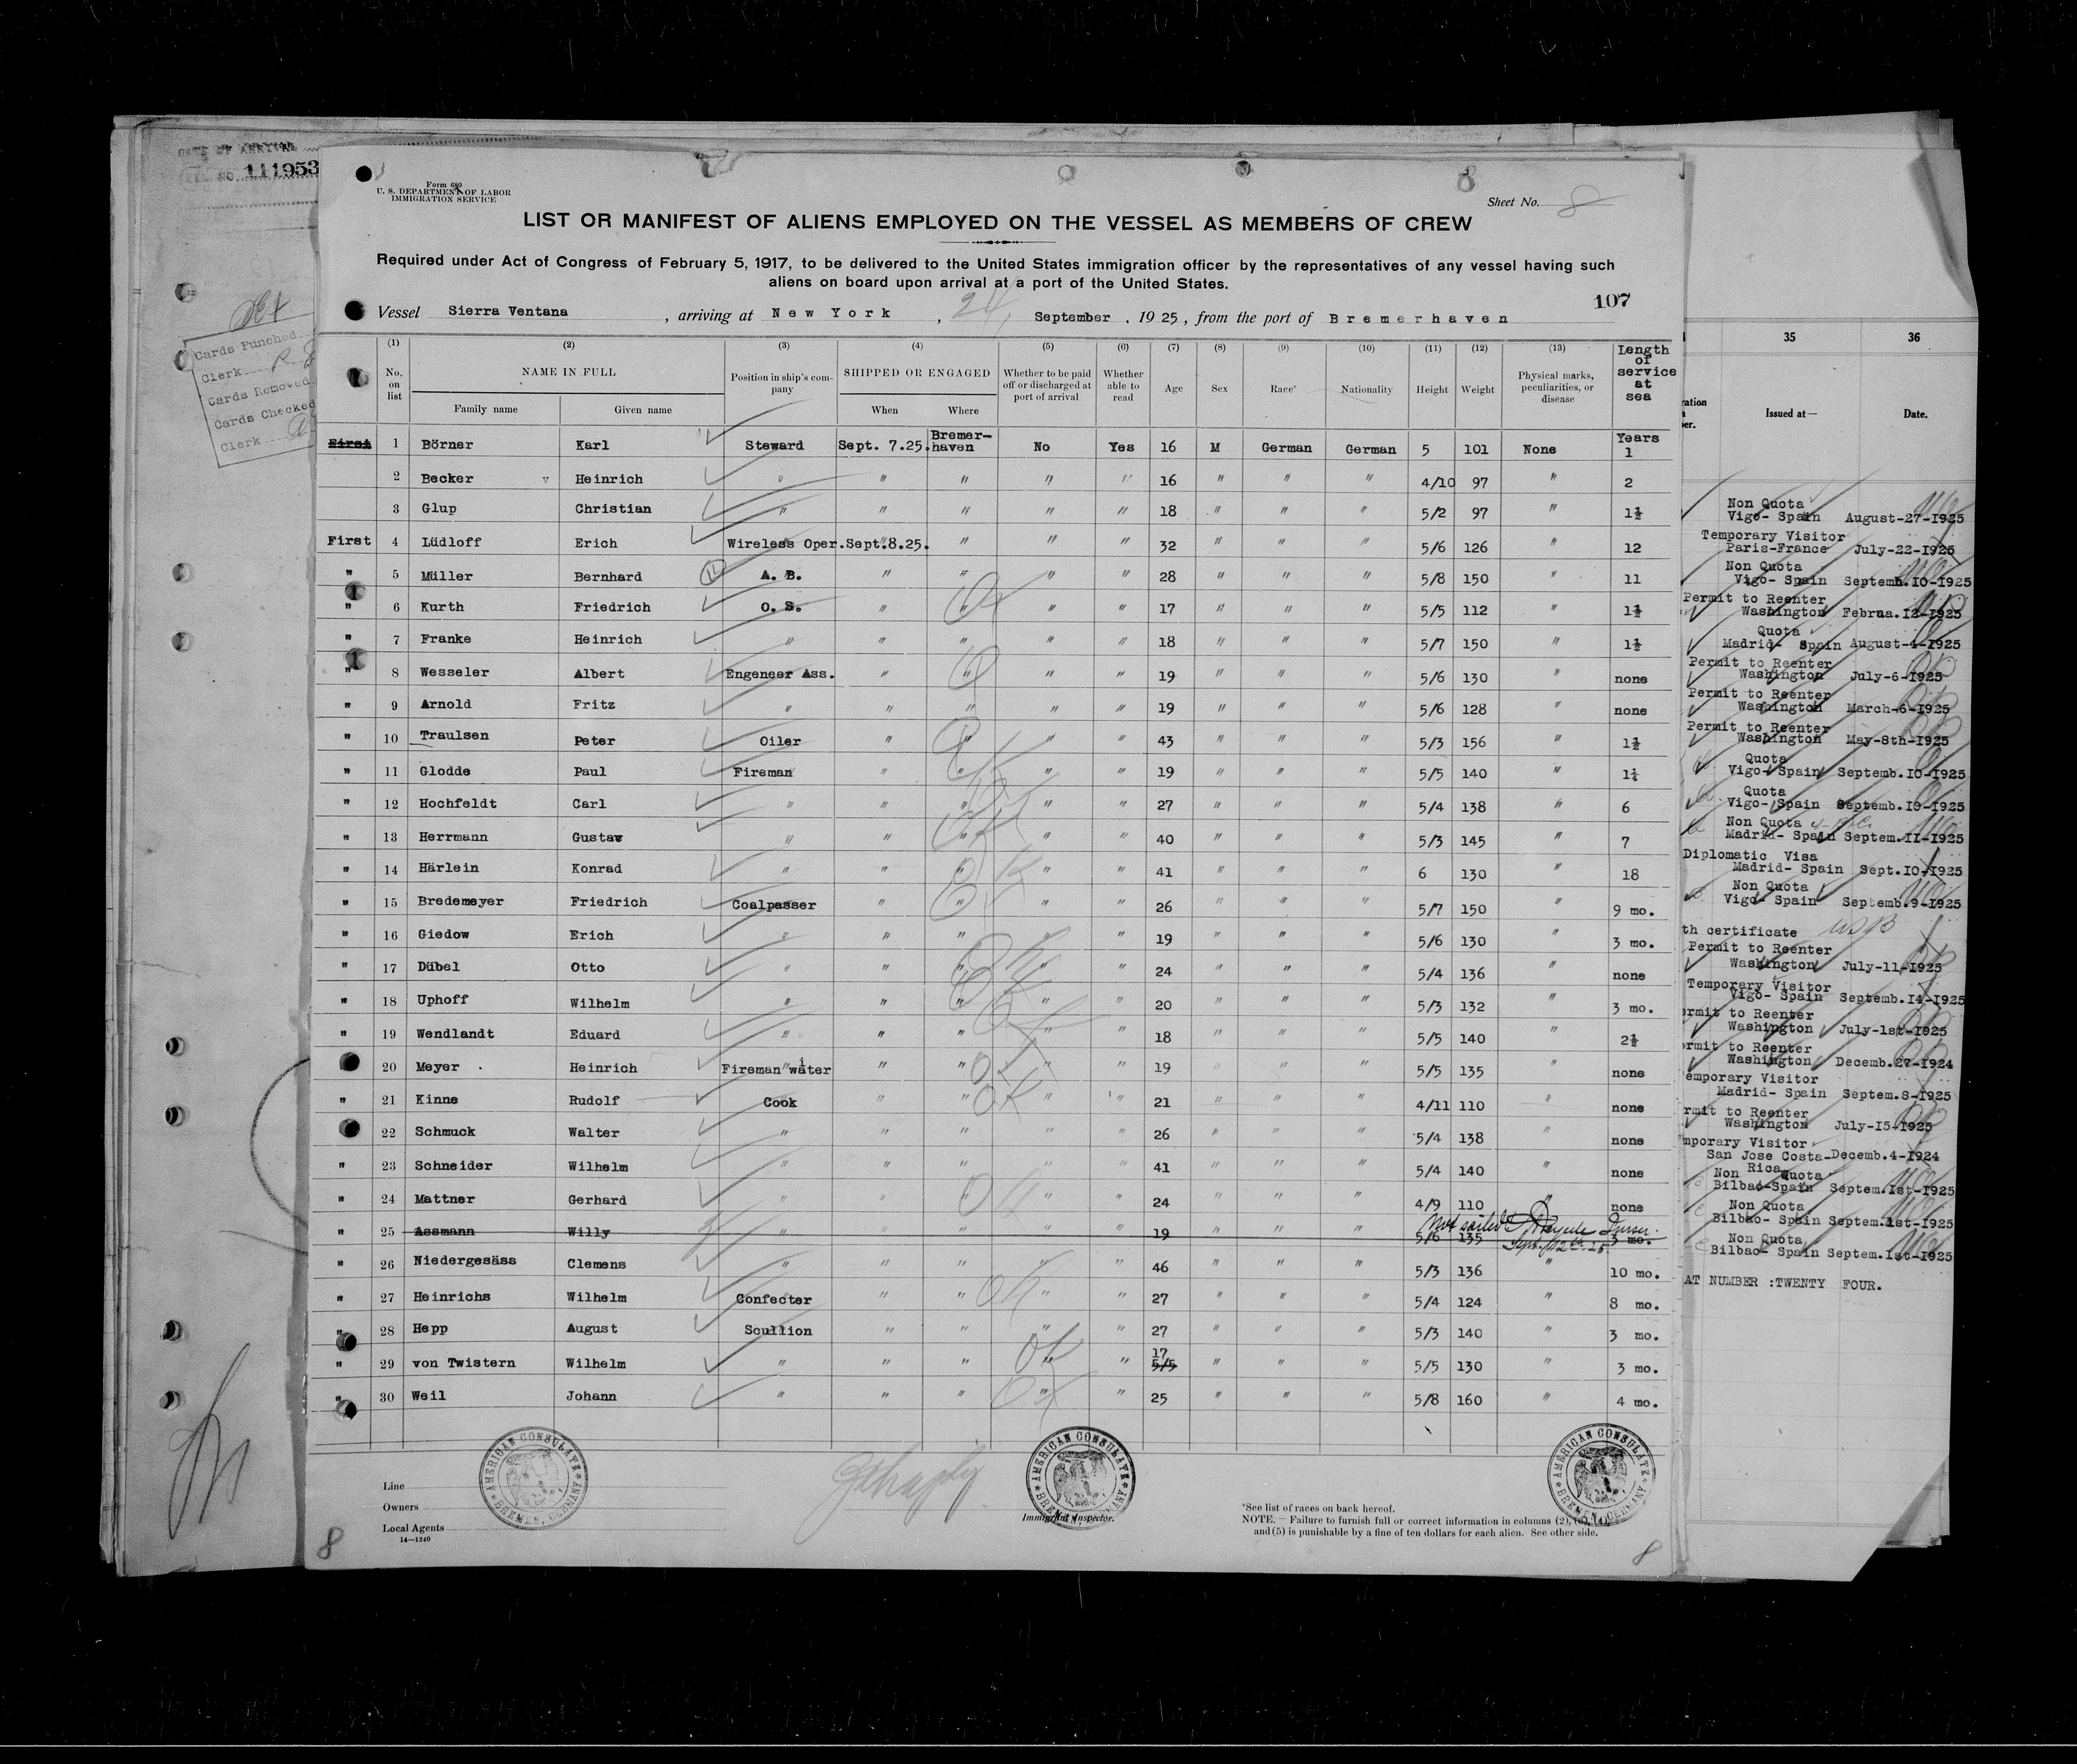 DATE OF ARRIVAL
NO. 111953
Cards Punched
Clerk
Cards Removed
Cards Checked
Clerk
Form 680
U. S. DEPARTMENT OF LABOR
IMMIGRATION SERVICE
8
Sheet No. 8
LIST OR MANIFEST OF ALIENS EMPLOYED ON THE VESSEL AS MEMBERS OF CREW
Required under Act of Congress of February 5, 1917, to be delivered to the United States immigration officer by the representatives of any vessel having such
aliens on board upon arrival at a port of the United States.
107
Vessel Sierra Ventana , arriving at New York , 24, September , 1925 , from the port of Bremerhaven
(1) (2) (3) (4) (5) (6) (7) (8) (9) (10) (11) (12) (13)
No. on list NAME IN FULL Family name Given name Position in ship's company SHIPPED OR ENGAGED When Where Whether to be paid off or discharged at port of arrival Whether able to read Age Sex Race* Nationality Height Weight Physical marks, peculiarities, or disease Length of service at sea
First 1 Börner Karl Steward Sept. 7.25. Bremerhaven No Yes 16 M German German 5 101 None Years 1
2 Becker v Heinrich " " " " " 16 " " " 4/10 97 " 2
3 Glup Christian " " " " " 18 " " " 5/2 97 " 1½
First 4 Lüdloff Erich Wireless Oper. Sept.8.25. " " " 32 " " " 5/6 126 " 12
" 5 Müller Bernhard A. B. " " " " 28 " " " 5/8 150 " 11
" 6 Kurth Friedrich O. S. " " " " 17 " " " 5/5 112 " 1½
" 7 Franke Heinrich " " " " " 18 " " " 5/7 150 " 1½
" 8 Wesseler Albert Engeneer Ass. " " " " 19 " " " 5/6 130 " none
" 9 Arnold Fritz " " " " " 19 " " " 5/6 128 " none
" 10 Traulsen Peter Oiler " " " " 43 " " " 5/3 156 " 1½
" 11 Glodde Paul Fireman " " " " 19 " " " 5/5 140 " 1¼
" 12 Hochfeldt Carl " " " " " 27 " " " 5/4 138 " 6
" 13 Herrmann Gustav " " " " " 40 " " " 5/3 145 " 7
" 14 Härlein Konrad " " " " " 41 " " " 6 130 " 18
" 15 Bredemeyer Friedrich Coalpasser " " " " 26 " " " 5/7 150 " 9 mo.
" 16 Giedow Erich " " " " " 19 " " " 5/6 130 " 3 mo.
" 17 Dübel Otto " " " " " 24 " " " 5/4 136 " none
" 18 Uphoff Wilhelm " " " " " 20 " " " 5/3 132 " 3 mo.
" 19 Wendlandt Eduard " " " " " 18 " " " 5/5 140 " 2½
20 Meyer Heinrich " " " " " 19 " " " 5/5 135 " none
" 21 Kinne Rudolf Cook " " " " 21 " " " 4/11 110 " none
22 Schmuck Walter " " " " " 26 " " " 5/4 138 " none
" 23 Schneider Wilhelm " " " " " 41 " " " 5/4 140 " none
" 24 Mattner Gerhard " " " " " 24 " " " 4/9 110 " none
" 25 Assmann Willy " " " " " 19 " " " 5/6 135 3 mo.
Not sailed
Sept. 12th 25
" 26 Niedergesäss Clemens " " " " " 46 " " " 5/3 136 " 10 mo.
" 27 Heinrichs Wilhelm Confecter " " " " 27 " " " 5/4 124 " 8 mo.
" 28 Hepp August Scullion " " " " 27 " " " 5/3 140 " 3 mo.
" 29 von Twistern Wilhelm " " " " " 17 5/5 " " " 5/5 130 " 3 mo.
" 30 Weil Johann " " " " " 25 " " " 5/8 160 " 4 mo.
Line
Owners
Local Agents
14—1240
AMERICAN CONSULATE
BREMEN, GERMANY
AMERICAN CONSULATE
BREMEN, GERMANY
Immigrant Inspector.
AMERICAN CONSULATE
BREMEN, GERMANY
*See list of races on back hereof.
NOTE.—Failure to furnish full or correct information in columns (2), (3), (4),
and (5) is punishable by a fine of ten dollars for each alien. See other side.
8
8
35 36
Issued at— Date.
Non Quota
Vigo- Spain August-27-1925
Temporary Visitor
Paris-France July-22-1925
Non Quota
Vigo- Spain Septemb.10-1925
Permit to Reenter
Washington Februa.12-1925
Quota
Madrid- Spain August-4-1925
Permit to Reenter
Washington July-6-1925
Permit to Reenter
Washington March-6-1925
Permit to Reenter
Washington May-8th-1925
Quota
Vigo- Spain Septemb.10-1925
Quota
Vigo- Spain Septemb.10-1925
Non Quota
Madrid- Spain Septem.11-1925
Diplomatic Visa
Madrid- Spain Sept.10-1925
Non Quota
Vigo- Spain Septemb.9-1925
th certificate USB
Permit to Reenter
Washington July-11-1925
Temporary Visitor
Vigo- Spain Septemb.14-1925
ermit to Reenter
Washington July-1st-1925
ermit to Reenter
Washington Decemb.27-1924
emporary Visitor
Madrid- Spain Septem.8-1925
rmit to Reenter
Washington July-15-1925
mporary Visitor
San Jose Costa- Decemb.4-1924
Rica
Non Quota
Bilbao-Spain Septem.1st-1925
Non Quota
Bilbao- Spain Septem.1st-1925
Non Quota
Bilbao- Spain Septem.1st-1925
AT NUMBER :TWENTY FOUR.